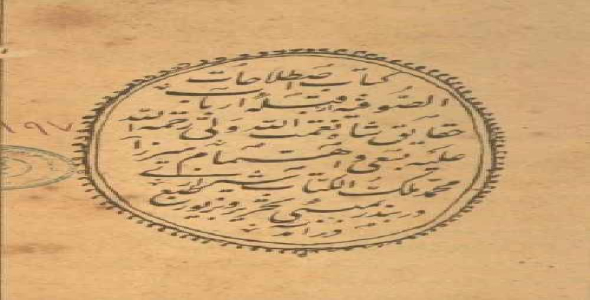 کتاب اصطلاحات
الصوفیه از قبله ارباب
حقایق شاه نعمت الله ولی رحمة الله
علیه بسعی و اهتمام میرزا
محمد ملک الکتاب شیرازی
در بندر بمبئی بزیور طبع
۱۹۷